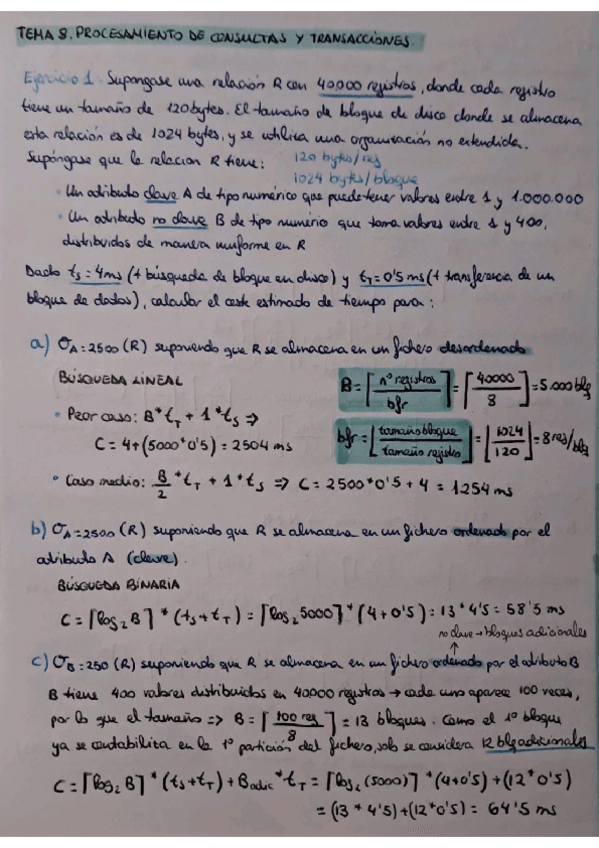 TEMA 8. PROCESAMIENTO DE CONSULTAS Y TRANSACCIONES.
Ejercicio 1. Supongase una relación R con 40.000 registros, donde cada registro
tiene un tamaño de 120 bytes. El tamaño de bloque de disco donde se almacena
esta relación es de 1024 bytes, y se utiliza una organización no extendida.
Supóngase que la relacion R tiene: 120 bytes/reg
1024 bytes/bloque
• Un atributo clave A de tipo numérico que puede tener valores entre 1 y 1.000.000
• Un atributo no clave B de tipo numérico que toma valores entre 1 y 400,
distribuidos de manera uniforme en R
Dado ts = 4ms (t búsqueda de bloque en disco) y tT = 0'5 ms (t transferencia de un
bloque de datos), calcular el coste estimado de tiempo para:
a) σA=2500 (R) suponiendo que R se almacena en un fichero desordenado
BÚSQUEDA LINEAL
B = ⌈nº registros / bfr⌉ = ⌈40000 / 8⌉ = 5.000 blq
• Peor caso: B * tT + 1 * ts ⇒
C = 4 + (5000 * 0'5) = 2504 ms
bfr = ⌊tamaño bloque / tamaño registro⌋ = ⌊1024 / 120⌋ = 8 reg/blq
• Caso medio: B/2 * tT + 1 * ts ⇒ C = 2500 * 0'5 + 4 = 1254 ms
b) σA=2500 (R) suponiendo que R se almacena en un fichero ordenado por el
atributo A (clave).
BÚSQUEDA BINARIA
C = ⌈log2 B⌉ * (ts + tT) = ⌈log2 5000⌉ * (4 + 0'5) = 13 * 4'5 = 58'5 ms
no clave → bloques adicionales
↑
c) σB=250 (R) suponiendo que R se almacena en un fichero ordenado por el atributo B
B tiene 400 valores distribuidos en 40000 registros → cada uno aparece 100 veces,
por lo que el tamaño => B = ⌈100 reg / 8⌉ = 13 bloques. Como el 1º bloque
ya se contabiliza en la 1º partición del fichero, solo se considera 12 blq adicionales
C = ⌈log2 B⌉ * (ts + tT) + Badic * tT = ⌈log2 (5000)⌉ * (4 + 0'5) + (12 * 0'5)
= (13 * 4'5) + (12 * 0'5) = 64'5 ms